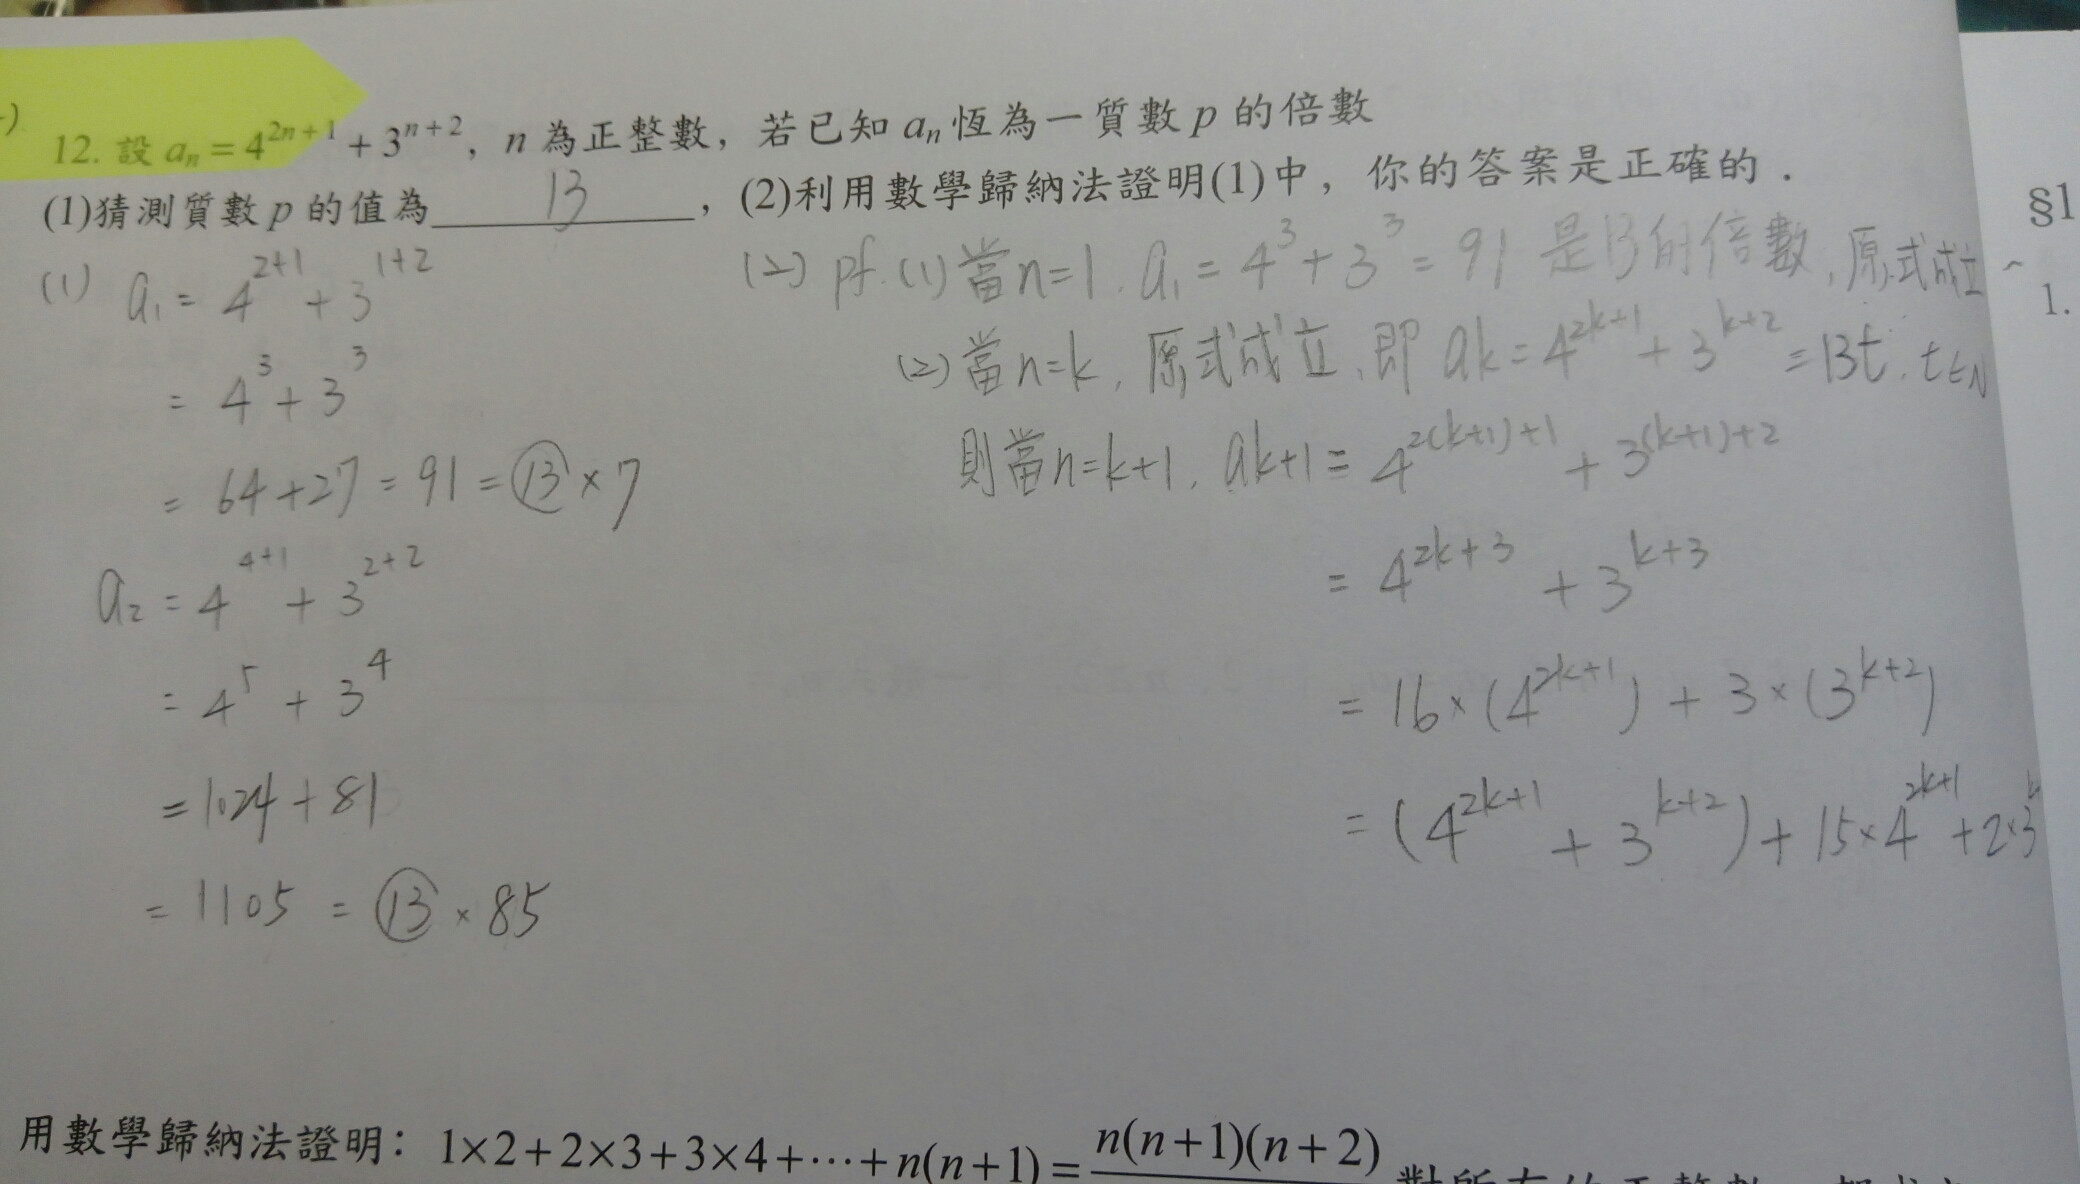 12. 設 aₙ = 4²ⁿ⁺¹ + 3ⁿ⁺², n 為正整數, 若已知 aₙ 恆為一質數 p 的倍數
(1)猜測質數 p 的值為 13 , (2)利用數學歸納法證明(1)中, 你的答案是正確的.
(1) a₁ = 4²⁺¹ + 3¹⁺²
= 4³ + 3³
= 64 + 27 = 91 = 13 × 7
a₂ = 4⁴⁺¹ + 3²⁺²
= 4⁵ + 3⁴
= 1024 + 81
= 1105 = 13 × 85
(2) pf. (1) 當 n=1. a₁ = 4³ + 3³ = 91 是13的倍數, 原式成立
(2) 當 n=k, 原式成立, 即 ak = 4²ᵏ⁺¹ + 3ᵏ⁺² = 13t. t∈N
則當 n=k+1. ak+1 = 4²⁽ᵏ⁺¹⁾⁺¹ + 3⁽ᵏ⁺¹⁾⁺²
= 4²ᵏ⁺³ + 3ᵏ⁺³
= 16 × (4²ᵏ⁺¹) + 3 × (3ᵏ⁺²)
= (4²ᵏ⁺¹ + 3ᵏ⁺²) + 15×4²ᵏ⁺¹ + 2×3ᵏ
用數學歸納法證明: 1×2+2×3+3×4+⋯+n(n+1) = n(n+1)(n+2)
§1
1.